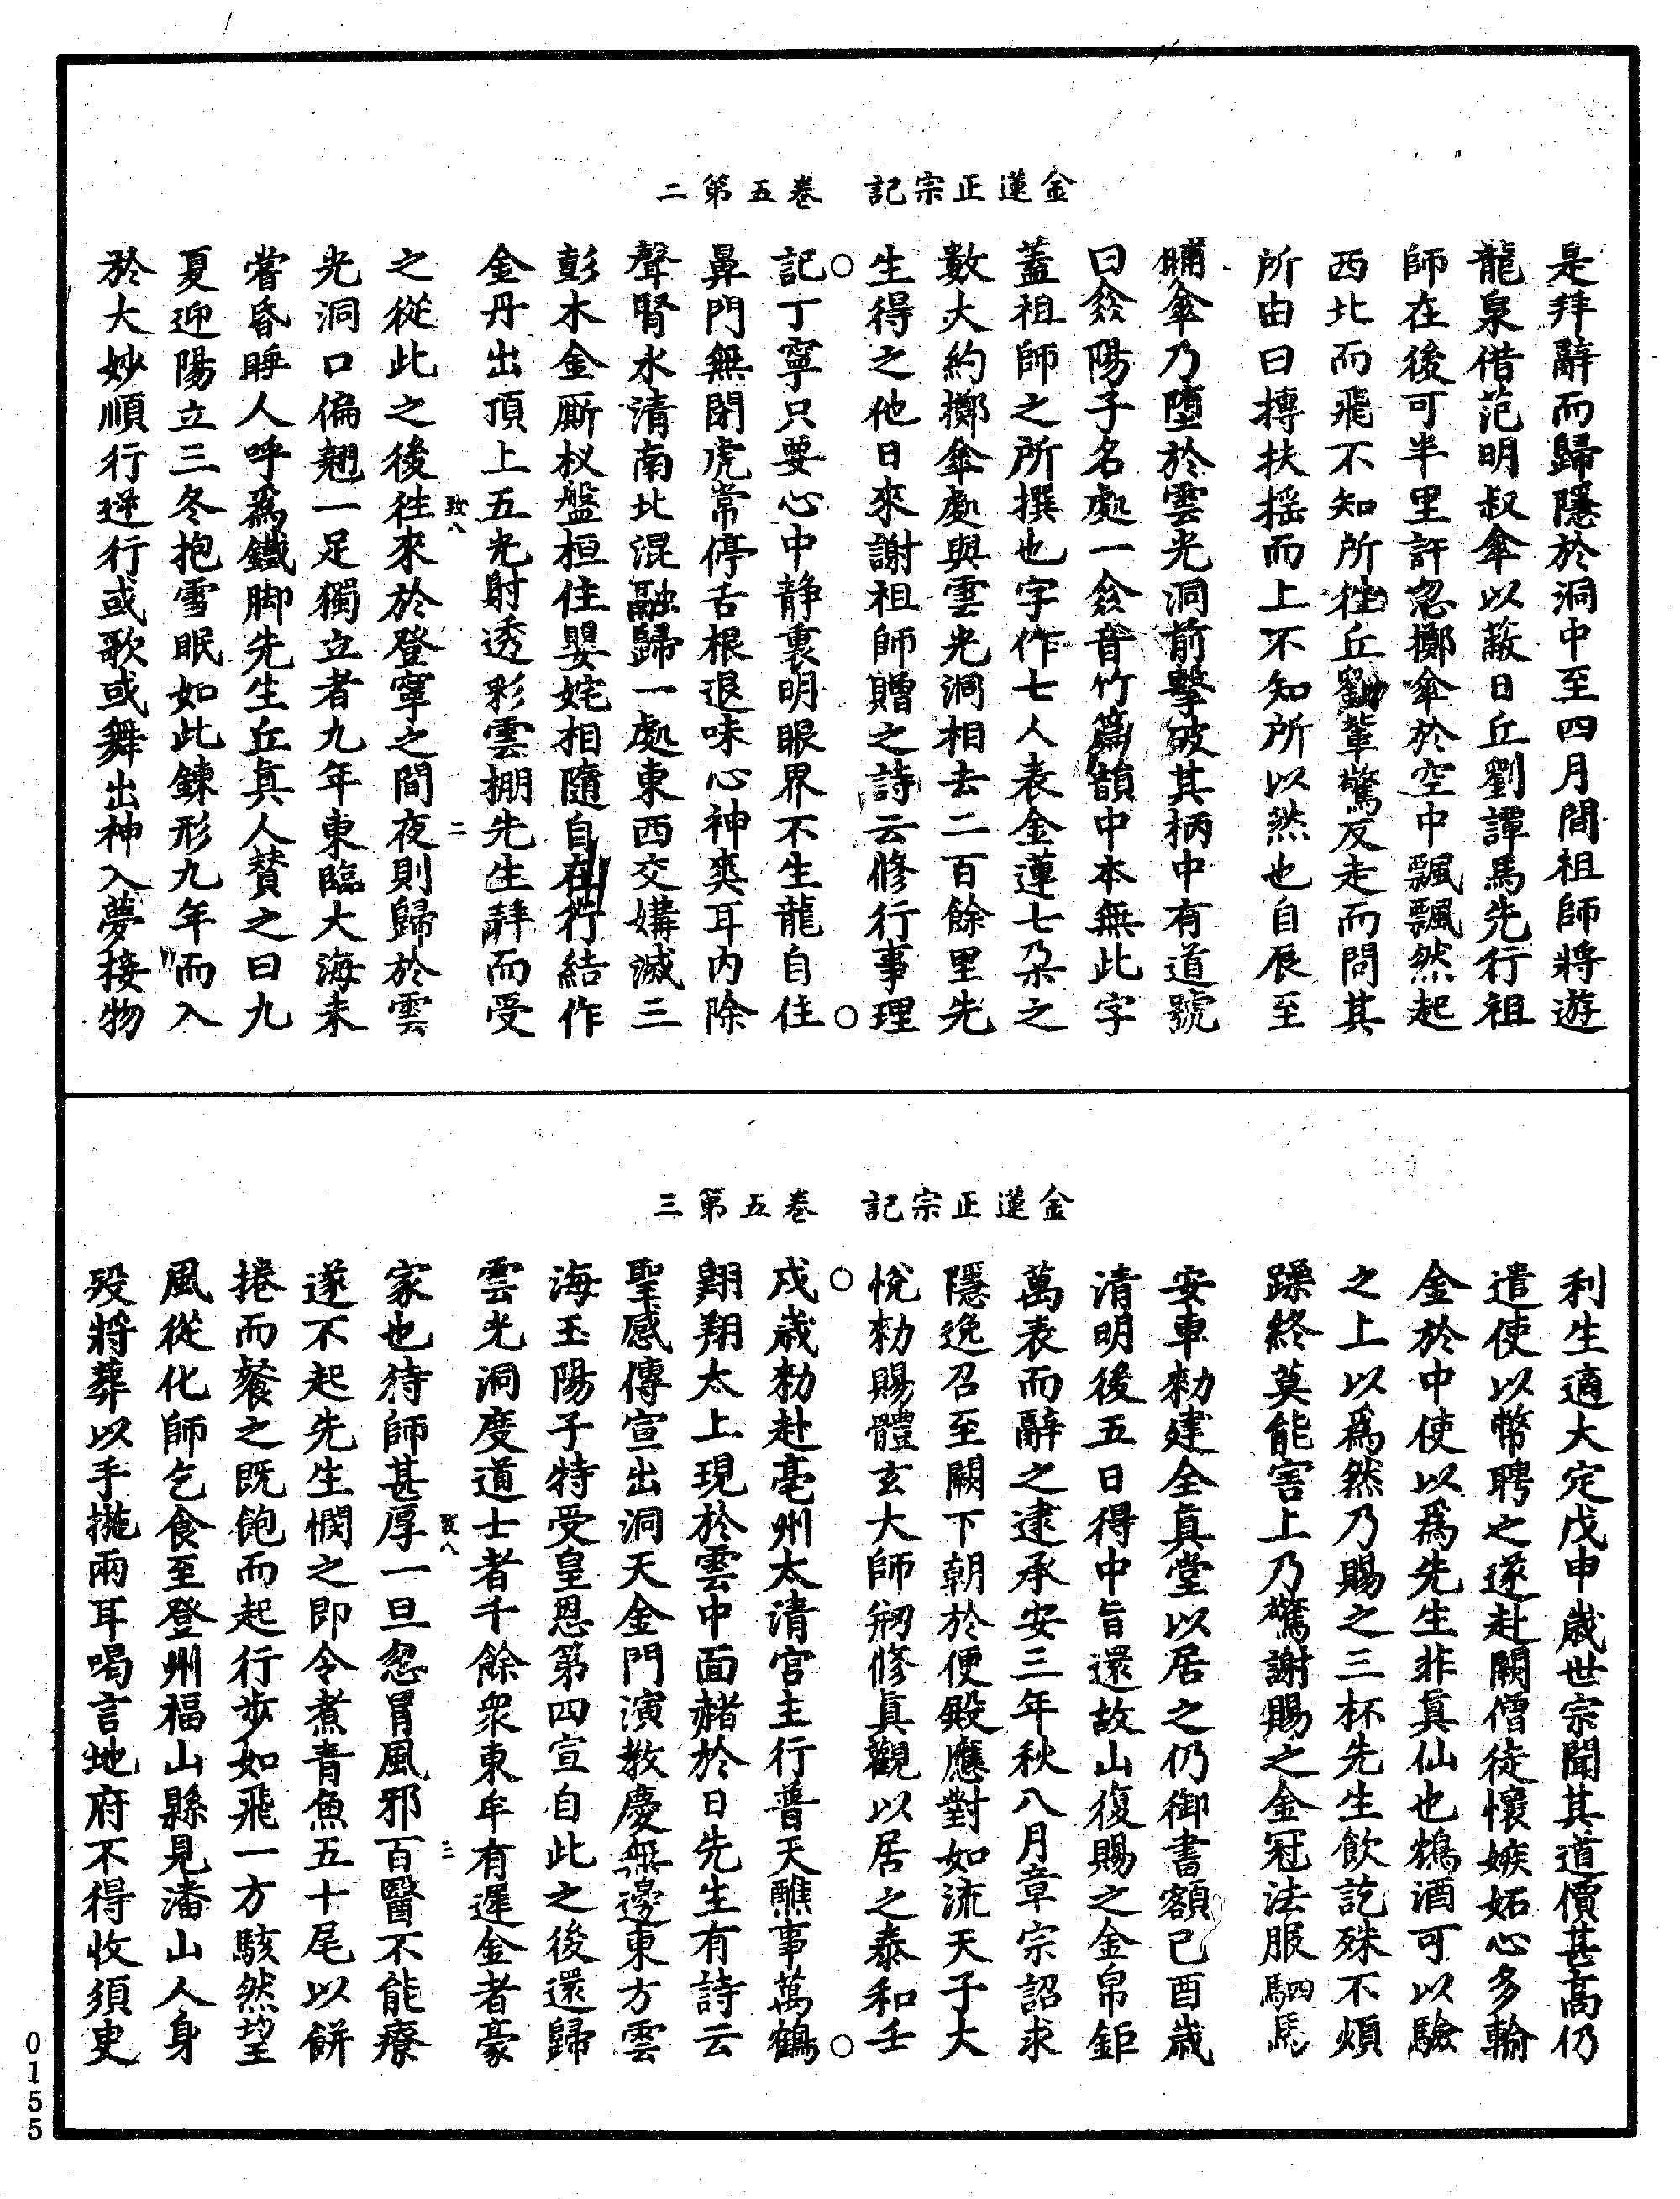 金蓮正宗記　卷五第二
是拜辭而歸隱於洞中至四月間祖師將遊
龍泉借范明叔傘以蔽日丘劉譚馬先行祖
師在後可半里許忽擲傘於空中飄飄然起
西北而飛不知所徃丘劉輩驚反走而問其
所由曰摶扶搖而上不知所以然也自辰至
晡傘乃墮於雲光洞前擊破其柄中有道號
曰傘陽子名處一傘音竹篇韻中本無此字
蓋祖師之所撰也字作七人表金蓮七朶之
數大約擲傘處與雲光洞相去二百餘里先
生得之他日來謝祖師贈之詩云修行事理
記丁寧只要心中静裏明眼界不生龍自住
鼻門無閉虎常停舌根退味心神爽耳内除
聲腎水清南北混融歸一處東西交媾滅三
彭木金厮杈盤桓住嬰姹相隨自在行結作
金丹出頂上五光射透彩雲棚先生拜而受
之從此之後徃來於登寧之間夜則歸於雲
光洞口偏翹一足獨立者九年東臨大海未
嘗昏睡人呼爲鐵脚先生丘真人賛之曰九
夏迎陽立三冬抱雪眠如此鍊形九年而入
於大妙順行逆行或歌或舞出神入夢接物
致八
二
金蓮正宗記　卷五第三
利生適大定戊申歳世宗聞其道價甚高仍
遣使以幣聘之遂赴闕僧徒懷嫉妬心多輸
金於中使以爲先生非真仙也鴆酒可以驗
之上以爲然乃賜之三杯先生飲訖殊不煩
躁終莫能害上乃驚謝賜之金冠法服駟馬
安車勑建全真堂以居之仍御書額己酉歳
清明後五日得中旨還故山復賜之金帛鉅
萬表而辭之逮承安三年秋八月章宗詔求
隱逸召至闕下朝於便殿應對如流天子大
悅勑賜體玄大師剏修真觀以居之泰和壬
戌歳勑赴亳州太清宫主行普天醮事萬鶴
翺翔太上現於雲中面赭於日先生有詩云
聖感傳宣出洞天金門演教慶無邊東方雲
海玉陽子特受皇恩第四宣自此之後還歸
雲光洞度道士者千餘衆東牟有遲金者豪
家也待師甚厚一旦忽冒風邪百醫不能療
遂不起先生憫之即令煮青魚五十尾以餅
捲而餐之既飽而起行步如飛一方駭然望
風從化師乞食至登州福山縣見潘山人身
歿將葬以手擁兩耳喝言地府不得收須臾
致八
三
0155